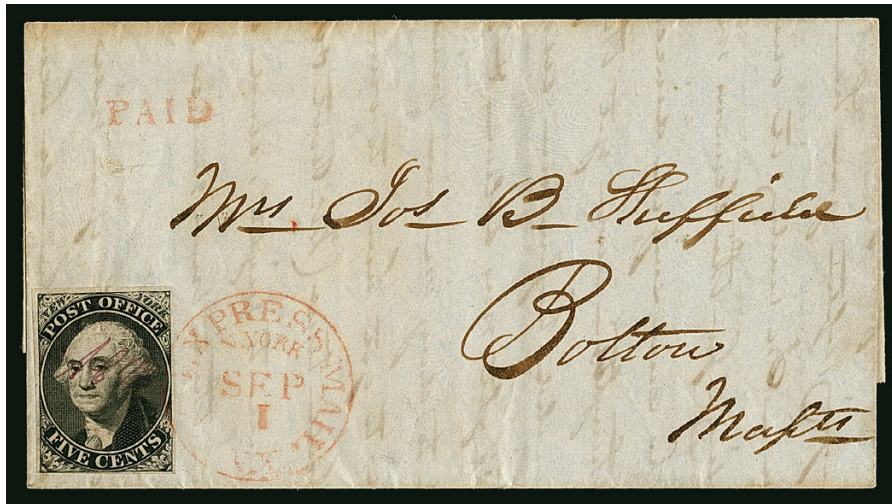 PAID
Mrs Jos B Sheffield
Bolton
Massts
NEW YORK
POST OFFICE
FIVE CENTS
EXPRESS MAIL
YORK
SEP
1
N.Y.